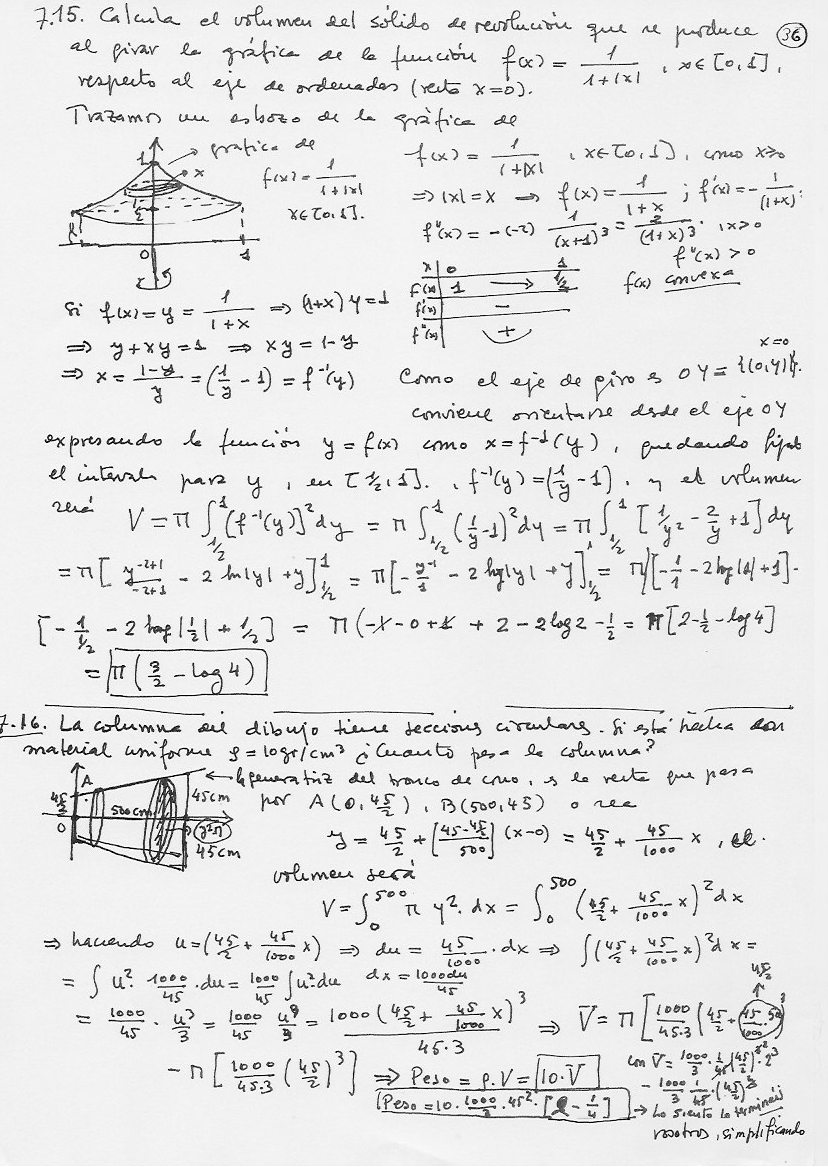 7.15. Calcula el volumen del sólido de revolución que se produce (36)
al girar la gráfica de la función f(x) = 1/(1+|x|), x∈[0,1],
respecto al eje de ordenadas (recta x=0).
Trazamos un esbozo de la gráfica de
gráfica de
f(x) = 1/(1+|x|)
x∈[0,1].
f(x) = 1/(1+|x|), x∈[0,1], como x≥0
⇒ |x| = x ⇒ f(x) = 1/(1+x) ; f'(x) = -1/(1+x)²
f''(x) = -(-2) 1/(x+1)³ = 2/(1+x)³. , x>0
f''(x) > 0
f(x) convexa
x | 0 1
f(x) | 1 → 1/2
f'(x) | -
f''(x) | +
1
x
1/2
0
1
Si f(x) = y = 1/(1+x) ⇒ (1+x) y = 1
⇒ y + xy = 1 ⇒ xy = 1-y
⇒ x = (1-y)/y = (1/y - 1) = f⁻¹(y)
Como el eje de giro es OY = {(0,y)}. x=0
conviene orientarse desde el eje OY
expresando la función y = f(x) como x = f⁻¹(y), quedando
el intervalo para y, en [1/2, 1]. , f⁻¹(y) = (1/y - 1), y el volumen
será V = π ∫_{1/2}^{1} (f⁻¹(y))² dy = π ∫_{1/2}^{1} (1/y - 1)² dy = π ∫_{1/2}^{1} [1/y² - 2/y + 1] dy
= π [y^{-2+1}/(-2+1) - 2 ln|y| + y]_{1/2}^{1} = π [-y^{-1}/1 - 2 log|y| + y]_{1/2}^{1} = π [-1/1 - 2 log|1| + 1] -
[-1/(1/2) - 2 log|1/2| + 1/2] = π (-1 - 0 + 1 + 2 - 2 log 2 - 1/2 = π [2 - 1/2 - log 4]
= π (3/2 - log 4)
7.16. La columna del dibujo tiene secciones circulares. Si está hecha con
material uniforme ρ = 10 gr/cm³ ¿Cuanto pesa la columna?
A
45/2
500cm
45cm
0
45cm
la generatriz del tronco de cono, es la recta que pasa
por A(0, 45/2), B(500, 45) o sea
y = 45/2 + [(45 - 45/2)/500] (x-0) = 45/2 + 45/1000 x, el
volumen será
V = ∫_0^{500} π y² · dx = ∫_0^{500} (45/2 + 45/1000 x)² dx
⇒ haciendo u = (45/2 + 45/1000 x) ⇒ du = 45/1000 · dx ⇒ ∫(45/2 + 45/1000 x)² dx =
= ∫ u² · 1000/45 · du = 1000/45 ∫ u² du dx = 1000du/45
= 1000/45 · u³/3 = 1000/45 u³/3 = 1000 (45/2 + 45/1000 x)³/(45·3) ⇒ V = π [1000/(45·3) (45/2 + 45/1000 · 500)³ 45/2
- π [1000/(45·3) (45/2)³] ⇒ Peso = ρ·V = 10·V
con V = 1000/3 · 1/45 (45/2)³ · 2³
- 1000/3 · 1/45 · (45/2)³
Peso = 10 · 1000/3 · 45² · [2 - 1/4] → Lo siento lo termináis
vosotros, simplificando